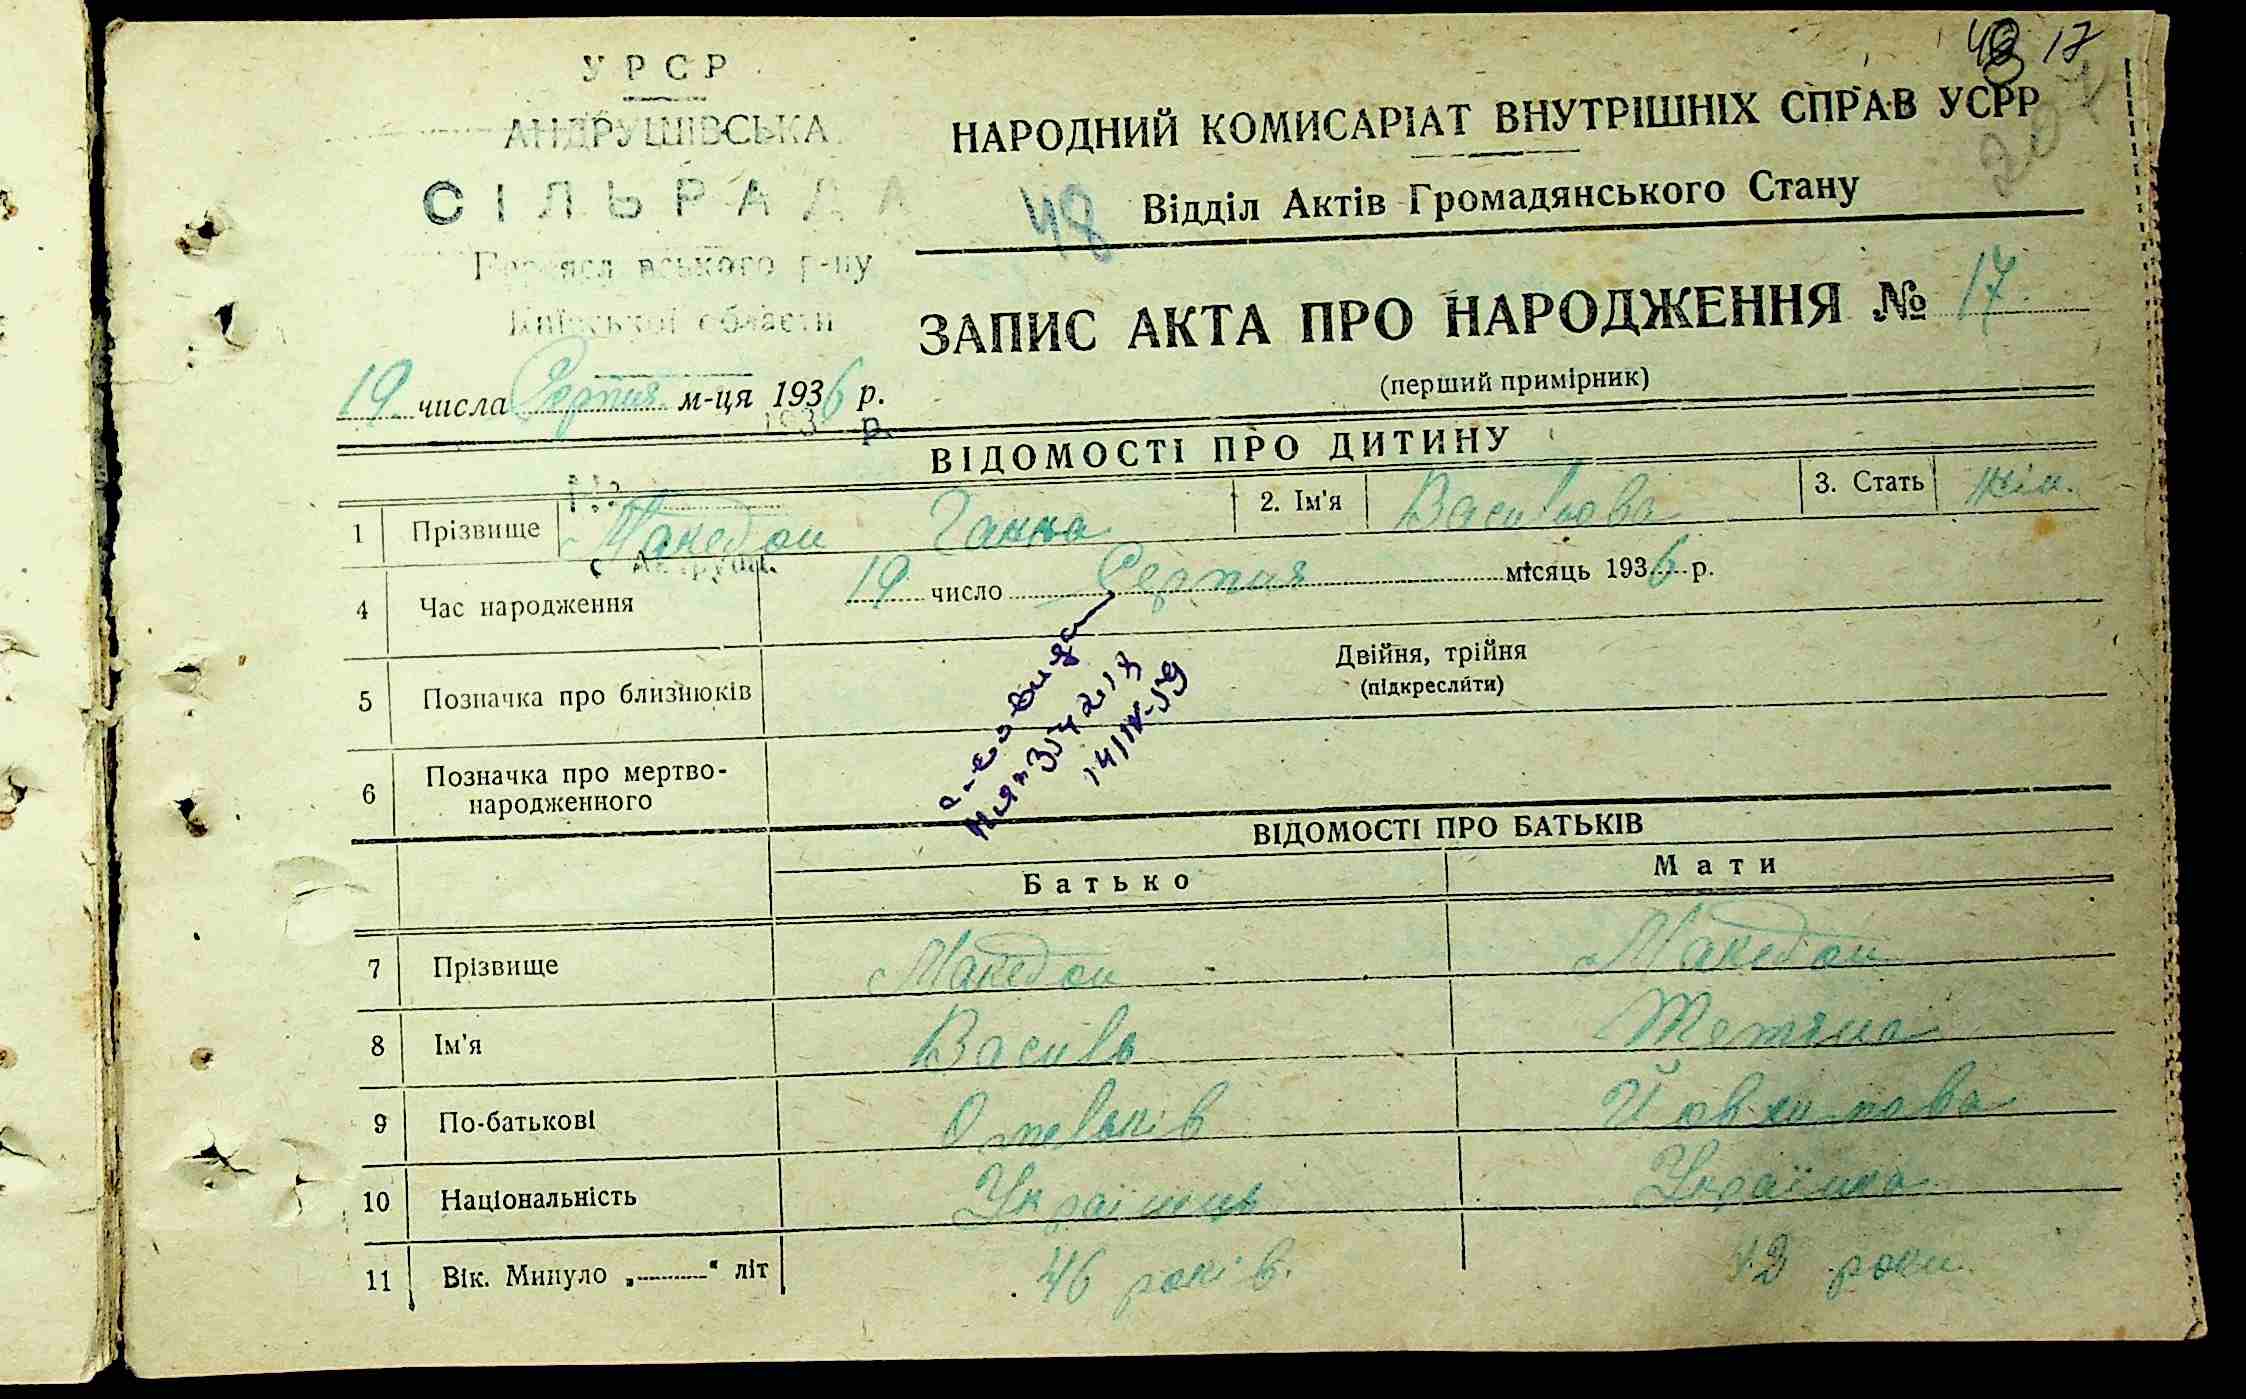 УРСР
АНДРУШІВСЬКА
СІЛЬРАДА
р-ну
Київської области
48 17
НАРОДНИЙ КОМИСАРІАТ ВНУТРІШНІХ СПРАВ УСРР
48 Відділ Актів Громадянського Стану
ЗАПИС АКТА ПРО НАРОДЖЕННЯ № 17
(перший примірник)
19 числа Серпня м-ця 1936 р.
193 р.
ВІДОМОСТІ ПРО ДИТИНУ
№
1 Прізвище Македон Ганна 2. Ім'я Васильова 3. Стать жін.
с. Андруш.
4 Час народження 19 число Серпня місяць 1936 р.
5 Позначка про близнюків Двійня, трійня
(підкреслити)
14/IV-59
6 Позначка про мертво-
народженного
ВІДОМОСТІ ПРО БАТЬКІВ
Батько Мати
7 Прізвище Македон Македон
8 Ім'я Василь Тетяна
9 По-батькові Омельків Йовхимова
10 Національність Українець Українка
11 Вік. Минуло „ “ літ 46 років. 43 роки